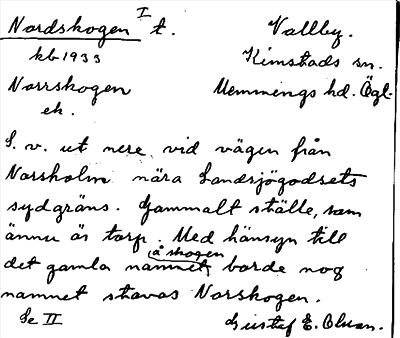 Nordskogen I t. Vallby.
kb 1933 Kimstads sn.
Norrskogen Memmings hd. Ögl.
ek.
S. v. ut nere vid vägen från
Norsholm nära Landsjögodsets
sydgräns. Gammalt ställe, som
ännu är torp. Med hänsyn till
å skogen
det gamla namnet borde nog
namnet stavas Norskogen.
Se II Gustaf E. Olsson.